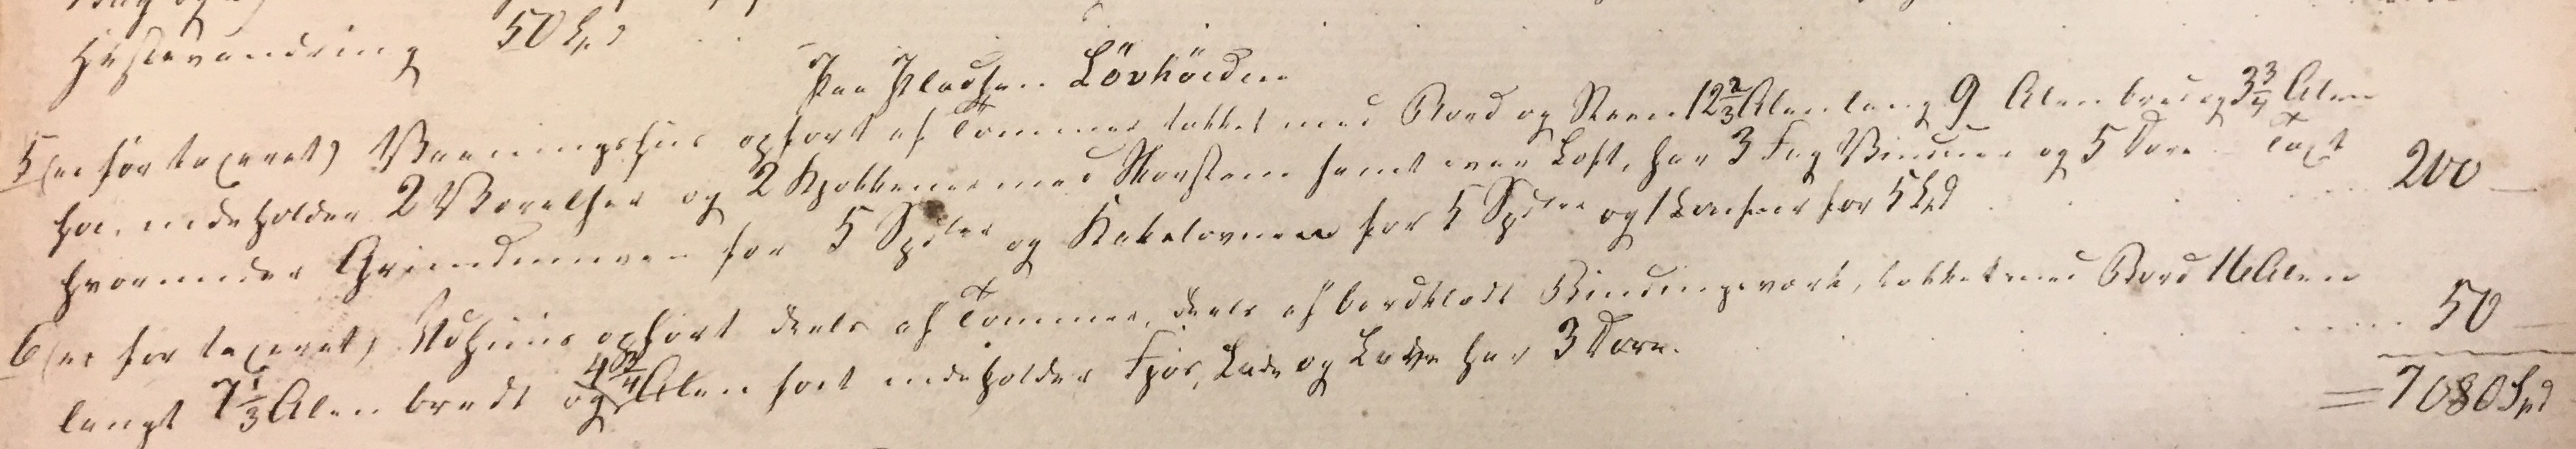 Hestevandring 50 Spd
Paa Pladsen Lövhöiden
5 (er før taxeret) Vaaningshus opført af Tømmer takket med Bord og Steen 12 2/3 Alen lang 9 Alen bred og 3 3/4 Alen
høi, indeholder 2 Værelser og 2 Kjøkkener med Skorsteen samt svær Loft, har 3 Fag Vinduer og 5 Døre Taxt 200
hvorunder Grundmuren for 5 Spdler og Kakelovnene for 5 Spdler og 1 for 5 Spd
6 (er før taxeret) Udhuus opført deels af Tømmer, deels af bordklædt Bindingsværk, takket med Bord 16 Alen 50
langt 7 1/3 Alen bredt og 4 3/4 Alen høit indeholder Fjøs, Lade og Lave har 3 Døre.
= 7080 Spd